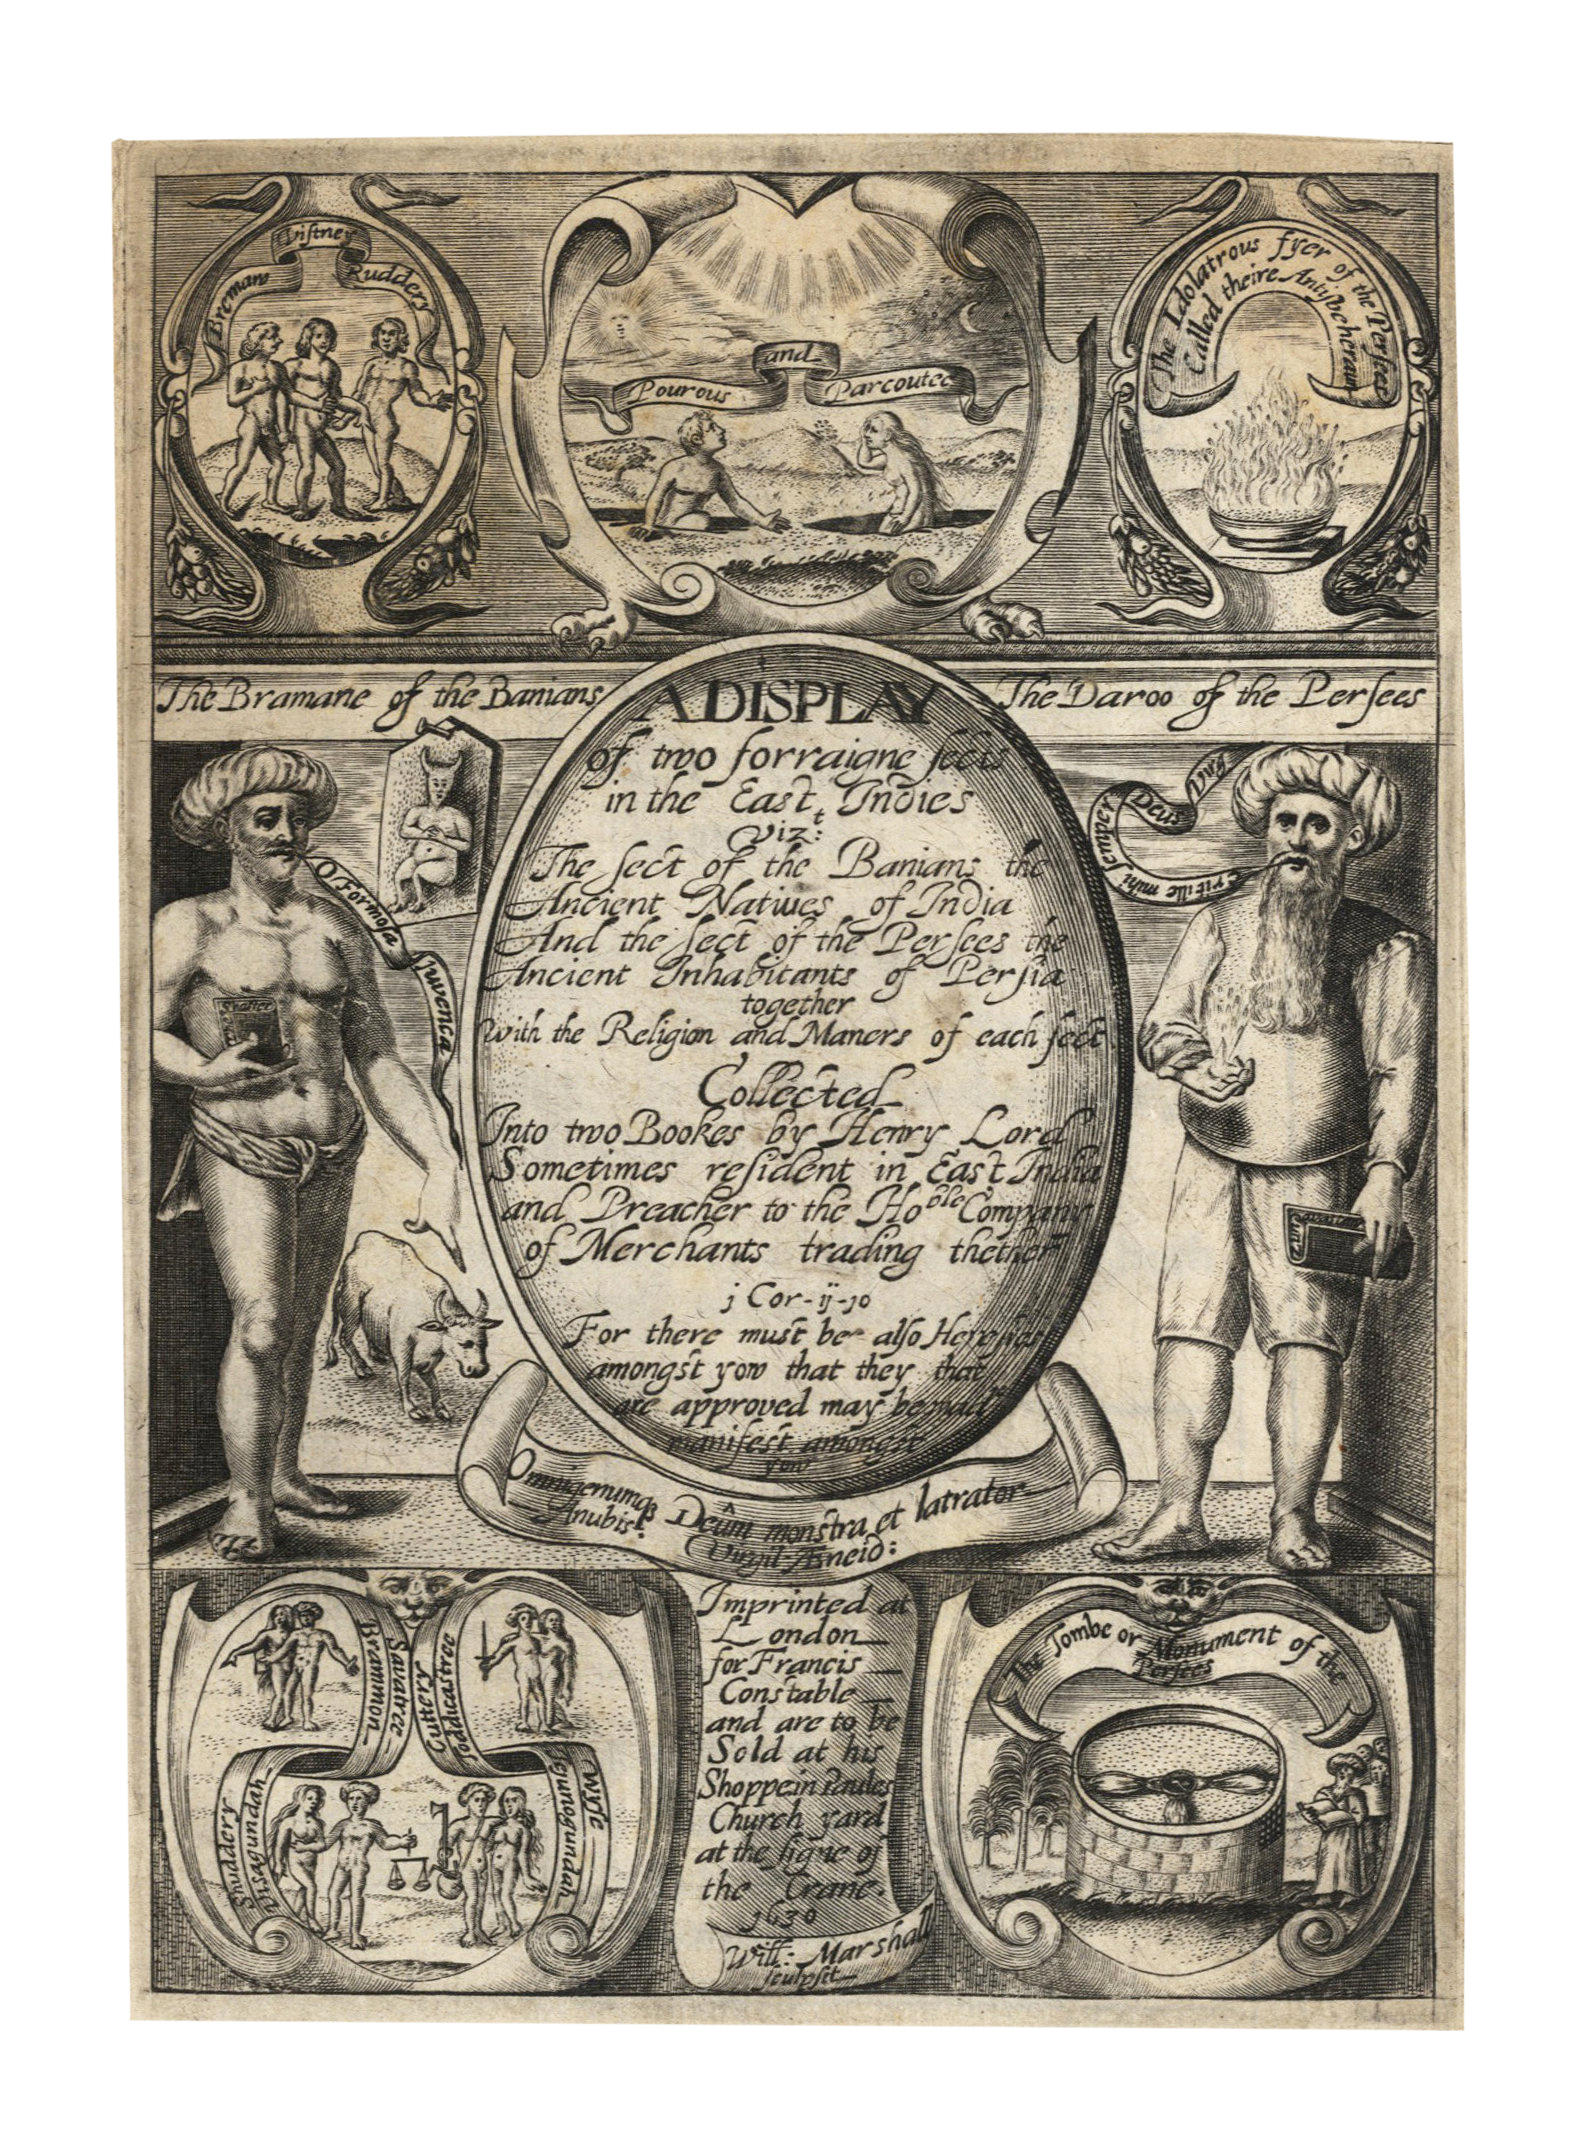 Bremaw
Wistney
Ruddery
Pourous
and
Parcoutee
The Idolatrous fyer of the Persees
Called theire Antisbeheraun
The Bramane of the Banians
The Daroo of the Persees
A DISPLAY
of two forraigne sects
in the East Indies
vizt:
The sect of the Banians the
Ancient Natiues of India
And the sect of the Persees the
Ancient Inhabitants of Persia
together
with the Religion and Maners of each sect
Collected
Into two Bookes by Henry Lord
Sometimes resident in East India
and Preacher to the Hoble Company
of Merchants trading thether
j Cor-ij-10
For there must be also Heresies
amongst yow that they that
are approved may be mad
manifest amongst
yow
O Formosa
Iuvenca
Shaster
Deus
erit ille mihi semper
Omnigenumqȝ Deûm monstra et latrator
Anubis:
Virgil Æneid:
Brammon
Savatree
Cuttery
Toddicastree
Shuddery
Visagundah
Wyse
Iejunogundah
Imprinted at
London
for Francis
Constable
and are to be
Sold at his
Shoppe in Paules
Church yard
at the signe of
the Crane.
1630
Will: Marshall
sculpsit
The Tombe or Monument of the
Persees